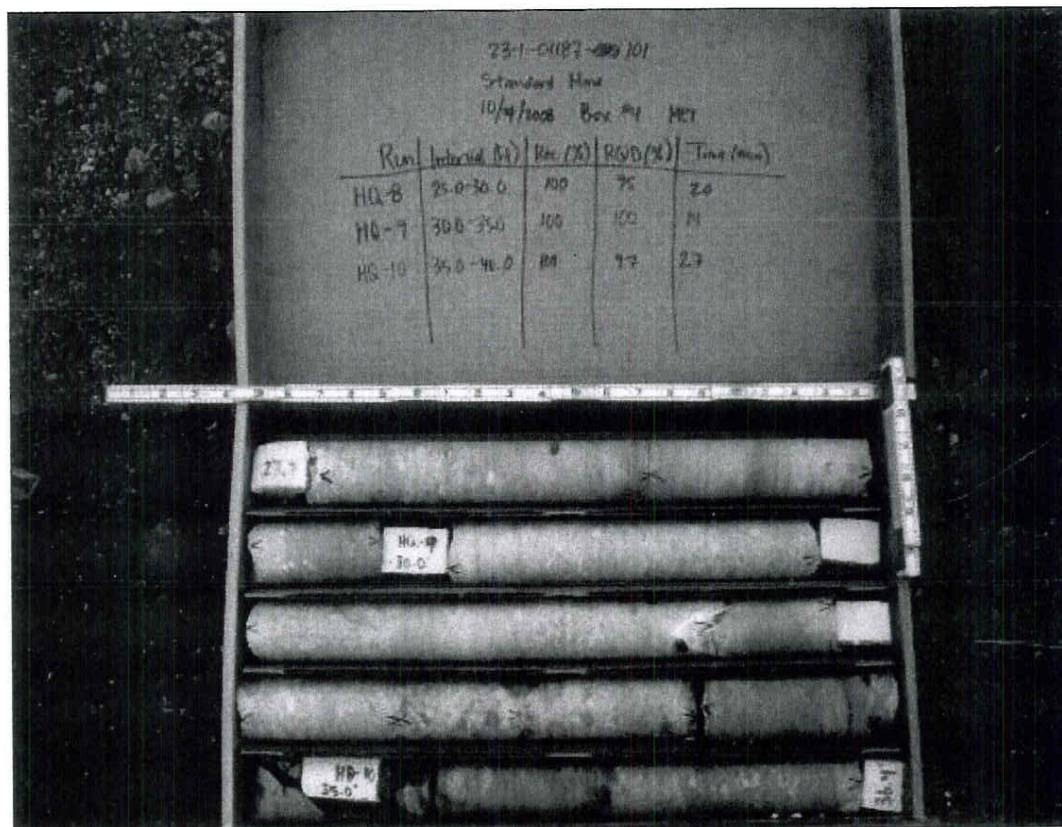 23-1-01187-101
Standard Mine
10/9/2008 Box #4 MPT
Run Interval (ft) Rec. (%) RQD (%) Time (min)
HQ-8 25.0-30.0 100 95 20
HQ-9 30.0-35.0 100 100 14
HQ-10 35.0-40.0 100 97 27
27.7
HQ-9
30.0
HQ-10
35.0'